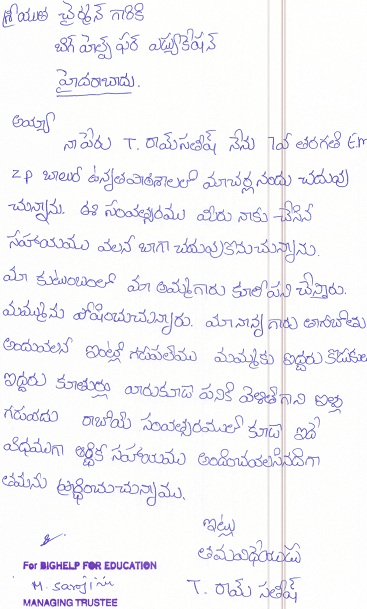 శ్రీయుత చైర్మన్ గారికి
బిగ్ హెల్ప్ ఫర్ ఎడ్యుకేషన్
హైదరాబాదు.
అయ్యా
నా పేరు T. రామ్ సతీష్ నేను 7వ తరగతి Em
ZP బాలుర ఉన్నతపాఠశాలలో మాచర్ల నందు చదువు
చున్నాను. ఈ సంవత్సరము మీరు నాకు చేసిన
సహాయము వలన బాగా చదువుకొనుచున్నాను.
మా కుటుంబంలో మా అమ్మగారు కూలీ పని చేస్తారు.
మమ్మును పోషించుచున్నారు. మా నాన్న గారు తాగుబోతు
అందువలన ఇంట్లో గడువలేము మమ్మకు ఇద్దరు కొడుకులు
ఇద్దరు కూతుర్లు వారుకూడా పనికి వెళితేగాని ఇల్లు
గడువదు రాబోయే సంవత్సరములో కూడా ఇదే
విధముగా ఆర్థిక సహాయము అందించవలసినదిగా
తమను ప్రార్థించుచున్నాము.
ఇట్లు
తమవిధేయుడు
T. రామ్ సతీష్
For BIGHELP FOR EDUCATION
M. Sarojini
MANAGING TRUSTEE